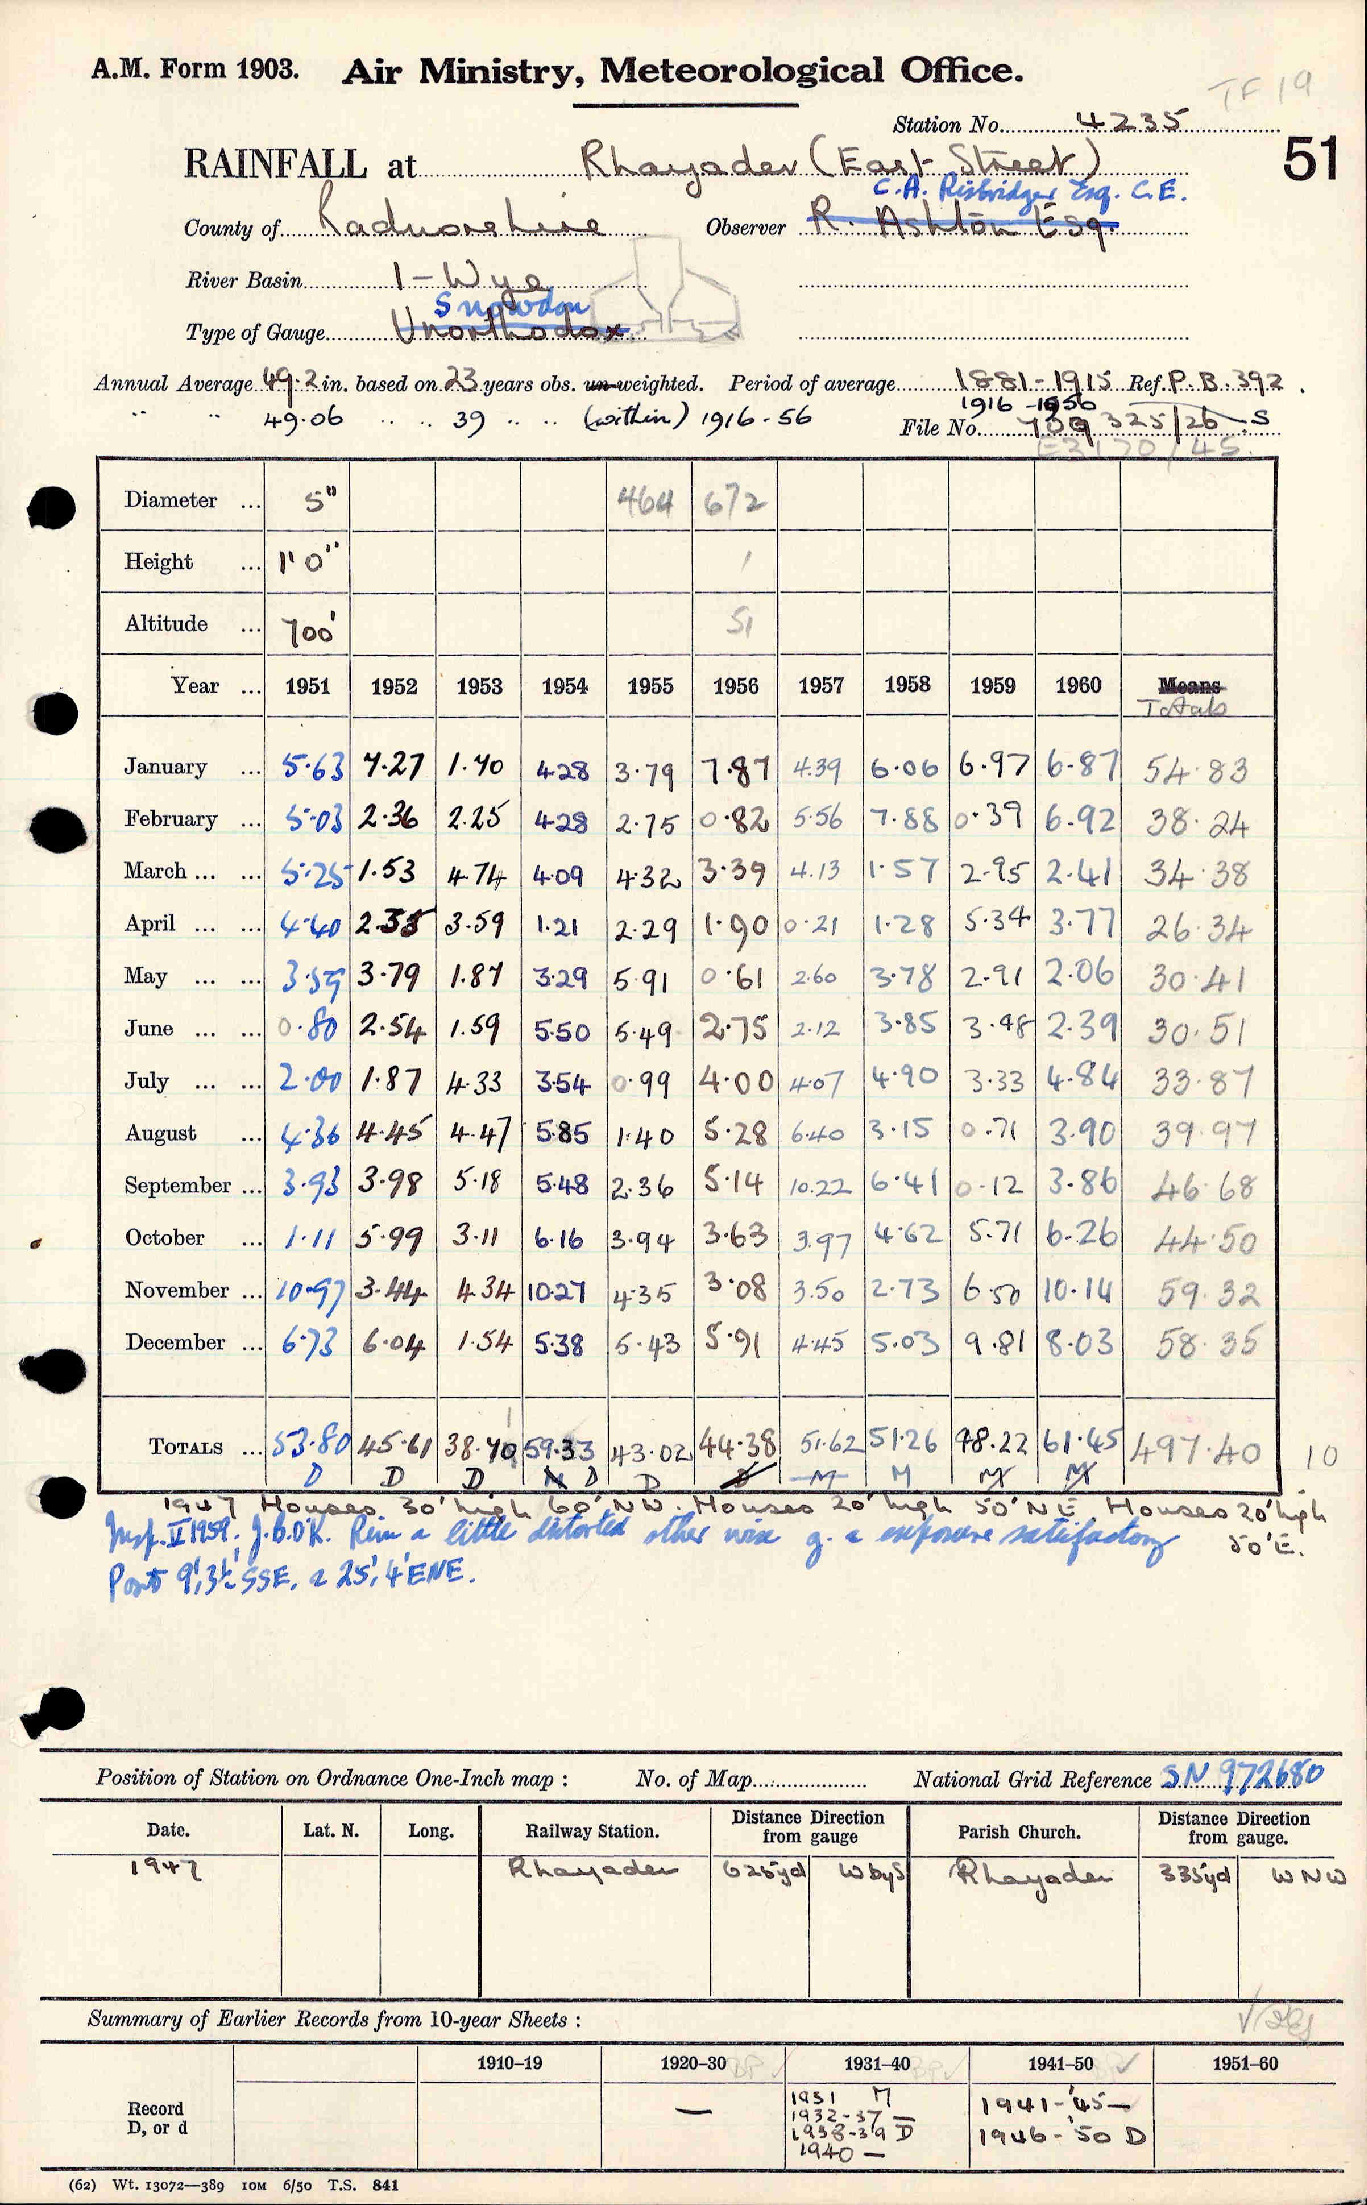 A.M. Form 1903. Air Ministry, Meteorological Office.
TF 19
Station No. 4235
51
RAINFALL at Rhayader (East Street)
C.A. Risbridger Esq. C.E.
County of Radnorshire Observer R. Ashton Esq.
River Basin 1 - Wye
Snowdon
Type of Gauge Unorthodox
Annual Average 49.2 in. based on 23 years obs. un-weighted. Period of average 1881-1915 Ref. P.B. 392.
" " 49.06 .. .. 39 .. .. (within) 1916-56 1916-1956
File No. 709325/26.S
E3170/45.
Diameter ... 5" 464 672
Height ... 1'0" 1
Altitude ... 700' 51
Year ... 1951 1952 1953 1954 1955 1956 1957 1958 1959 1960 Means
Totals
January ... 5.63 7.27 1.70 4.28 3.79 7.87 4.39 6.06 6.97 6.87 54.83
February ... 5.03 2.36 2.25 4.28 2.75 0.82 5.56 7.88 0.39 6.92 38.24
March ... ... 5.25 1.53 4.74 4.09 4.32 3.39 4.13 1.57 2.95 2.41 34.38
April ... ... 4.40 2.35 3.59 1.21 2.29 1.90 0.21 1.28 5.34 3.77 26.34
May ... ... 3.59 3.79 1.87 3.29 5.91 0.61 2.60 3.78 2.91 2.06 30.41
June ... ... 0.80 2.54 1.59 5.50 5.49 2.75 2.12 3.85 3.48 2.39 30.51
July ... ... 2.00 1.87 4.33 3.54 0.99 4.00 4.07 4.90 3.33 4.84 33.87
August ... 4.36 4.45 4.47 5.85 1.40 5.28 6.40 3.15 0.71 3.90 39.97
September ... 3.93 3.98 5.18 5.48 2.36 5.14 10.22 6.41 0.12 3.86 46.68
October ... 1.11 5.99 3.11 6.16 3.94 3.63 3.97 4.62 5.71 6.26 44.50
November ... 10.97 3.44 4.34 10.27 4.35 3.08 3.50 2.73 6.50 10.14 59.32
December ... 6.73 6.04 1.54 5.38 5.43 5.91 4.45 5.03 9.81 8.03 58.35
TOTALS ... 53.80 45.61 38.70 59.33 43.02 44.38 51.62 51.26 48.22 61.45 497.40 10
D D D N D D D M M M M
1947 Houses 30' high 60' NW. Houses 20' high 50' NE Houses 20' high
50' E.
Insp. II 1959. J.B.O'K. Rim a little distorted other wise g. & exposure satisfactory
Posts 9', 3½' SSE. & 25', 4' ENE.
Position of Station on Ordnance One-Inch map : No. of Map National Grid Reference SN 972680
Date. Lat. N. Long. Railway Station. Distance Direction from gauge Parish Church. Distance Direction from gauge.
1947 Rhayader 625yd W by S Rhayader 335yd WNW
Summary of Earlier Records from 10-year Sheets :
1910-19 1920-30 1931-40 1941-50 1951-60
Record
D, or d
—
1931 M
1932-37 —
1938-39 D
1940 —
1941-'45 —
1946-'50 D
(62) Wt. 13072—389 10M 6/50 T.S. 841